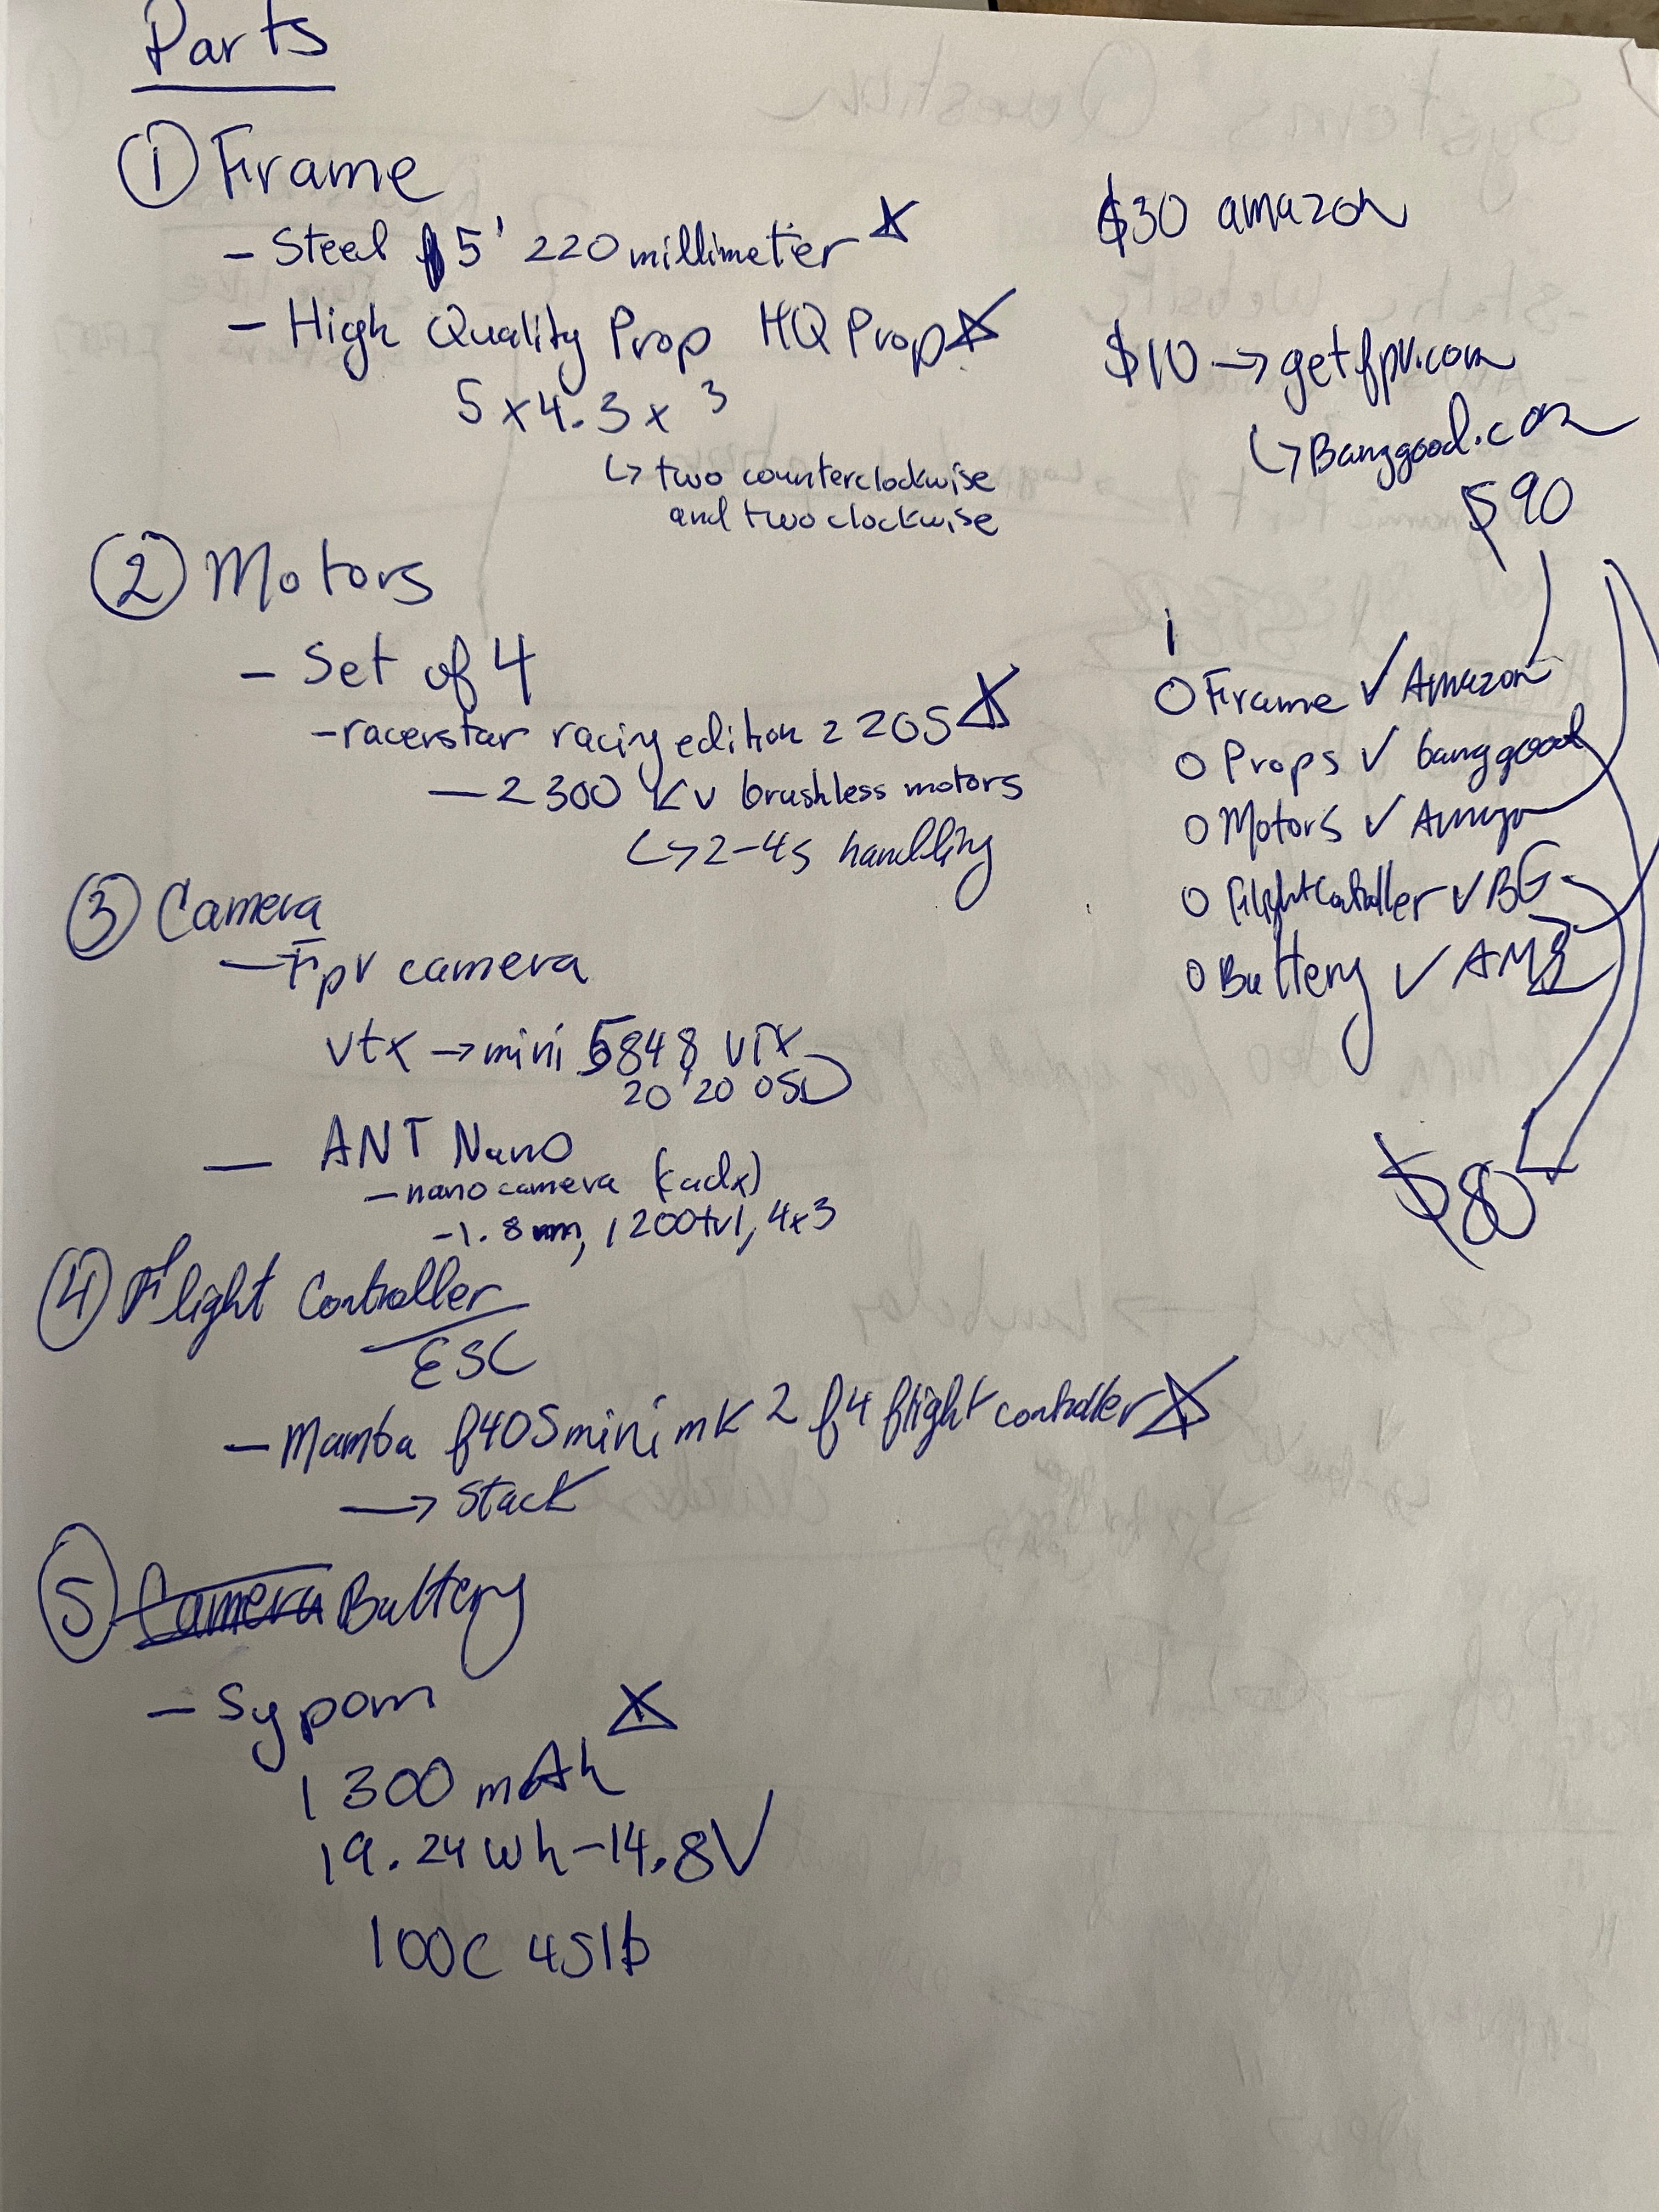 Parts
① Frame
- Steel 5' 220 millimeter ☆
$30 amazon
- High Quality Prop HQ Prop ☆
5 x 4.3 x 3
↳ two counterclockwise
and two clockwise
$10 → getfpv.com
↳ Banggood.com
$90
② Motors
- Set of 4
- racerstar racing edition 2205 ☆
- 2300 Kv brushless motors
↳ 2-4s handling
O Frame ✓ Amazon
O Props ✓ banggood
O Motors ✓ Amazon
O Flight Controller ✓ BG
O Battery ✓ AMZ
$80
③ Camera
- Fpv camera
vtx → mini 5848 vTx
20'20 OSD
- ANT Nano
- nano camera (cadx)
- 1.8 mm, 1200tvl, 4x3
④ Flight Controller
ESC
- Mamba f405 mini mk2 f4 flight controller ☆
→ Stack
⑤ Camera Battery
- Sypom ☆
1300 mAh
19.24 Wh - 14.8V
100C 4S1P